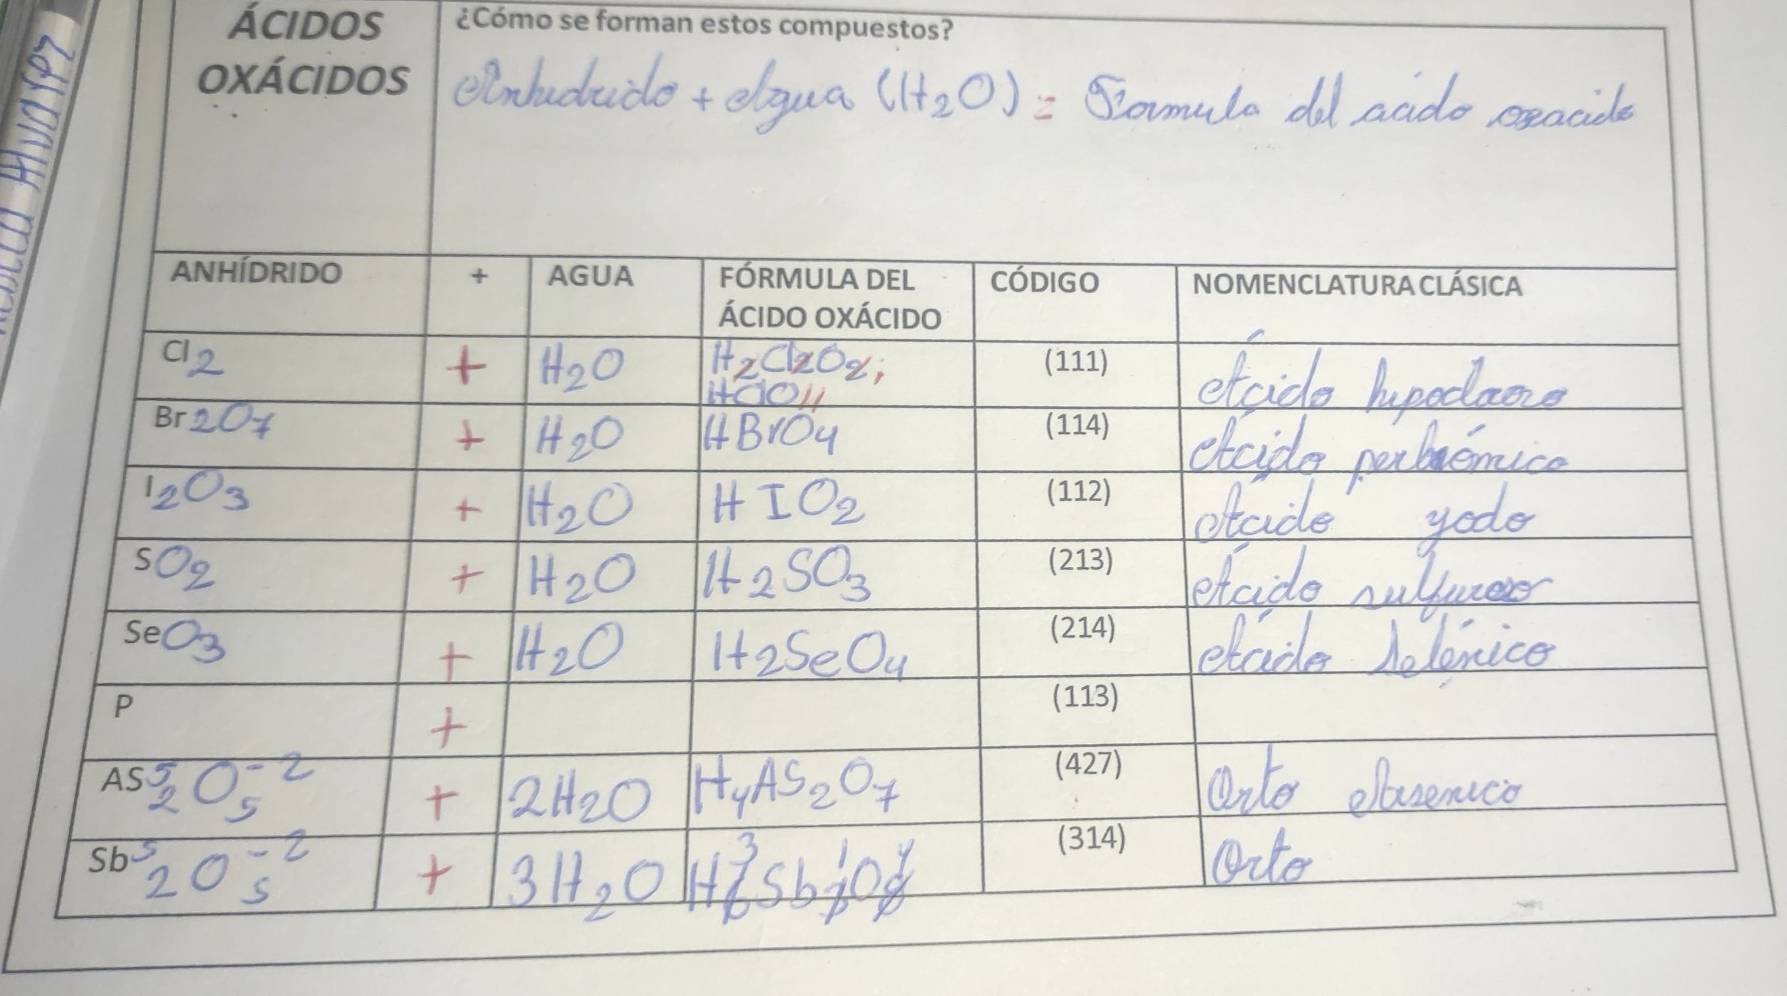 ÁCIDOS OXÁCIDOS
¿Cómo se forman estos compuestos?
Anhidrido + Agua (H2O) = Formula del acido oxacido
ANHÍDRIDO + AGUA FÓRMULA DEL ÁCIDO OXÁCIDO CÓDIGO NOMENCLATURA CLÁSICA
Cl2 + H2O H2Cl2O2; HClO (111) Ácido hipocloroso
Br2O7 + H2O HBrO4 (114) Ácido perbrómico
I2O3 + H2O HIO2 (112) Ácido yodo
SO2 + H2O H2SO3 (213) Ácido sulfuroso
SeO3 + H2O H2SeO4 (214) Ácido Selénico
P + (113)
AS5 2 O-2 5 + 2H2O H4AS2O7 (427) Orto Arsenico
Sb5 2 O-2 5 + 3H2O H3Sb1O4 (314) Orto